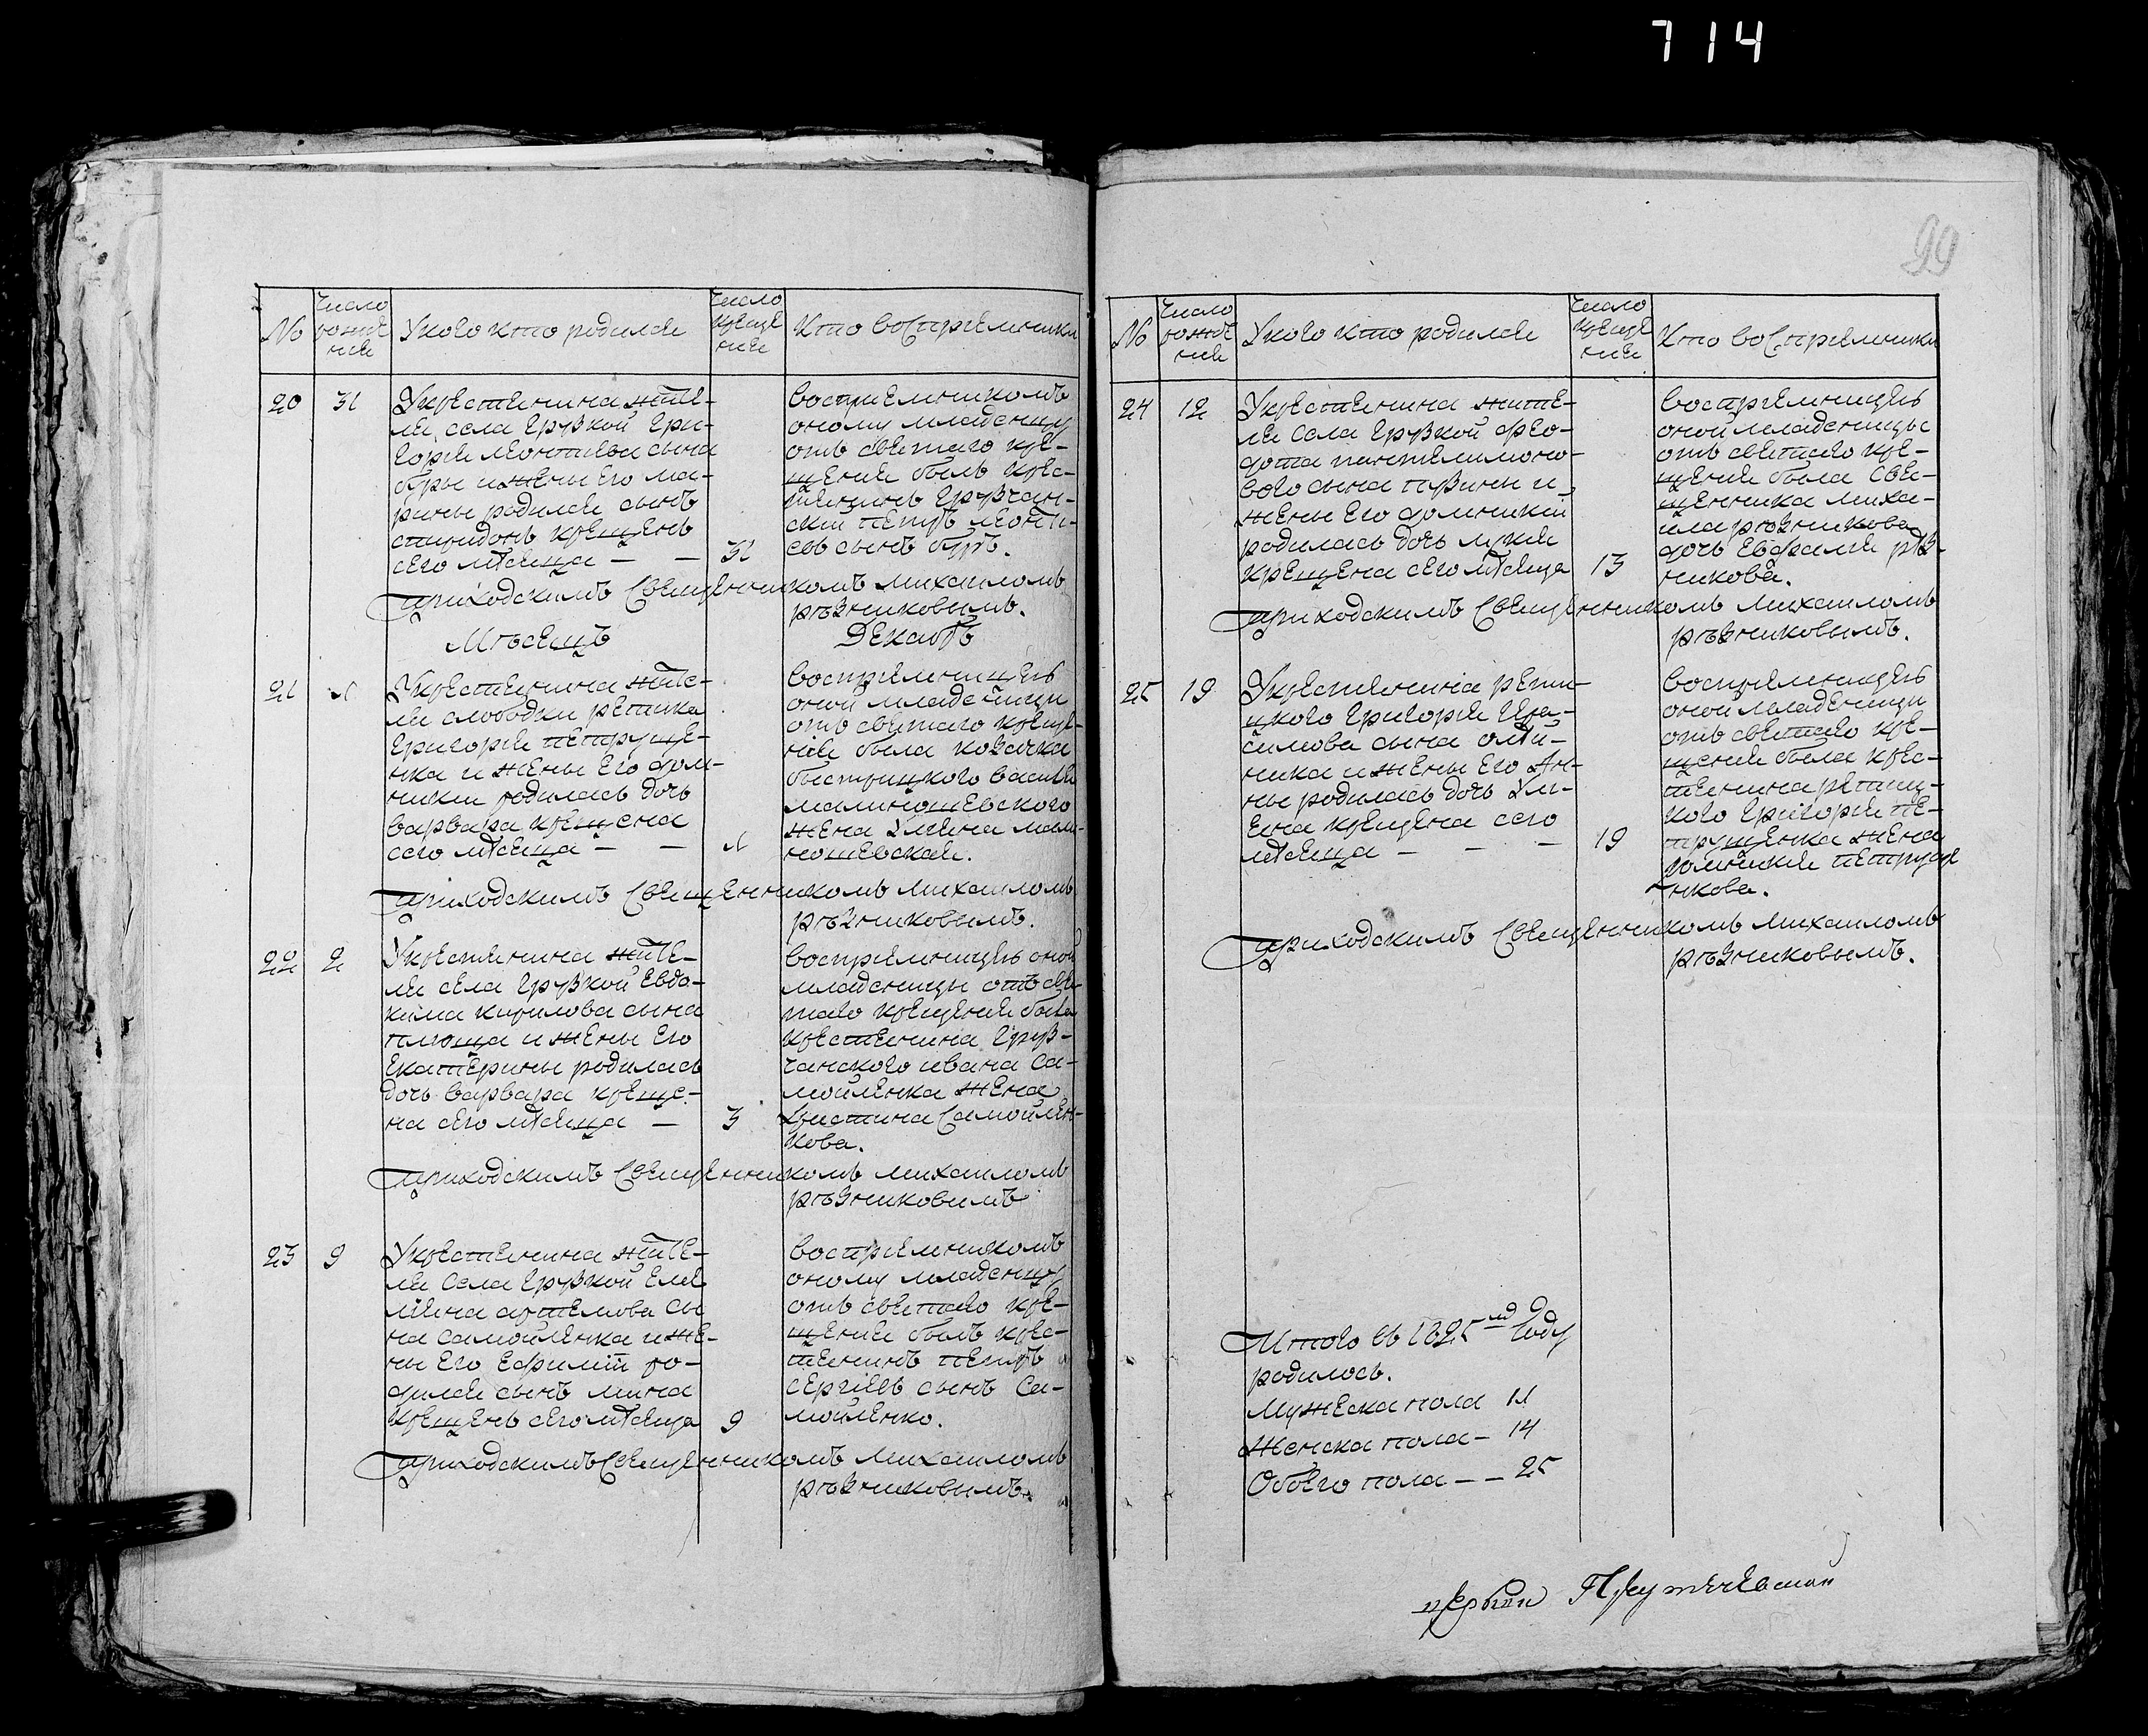 714
99
№ Число рожде ния Укого кто родился Число креще ния Кто воспріемники
20 31 Укрестянина жите-
ля села Грузкой Гри-
горія леонтіева сына
буры и жены его ма-
рины родился сынъ
спиридонъ крещенъ
сего мѣсяца — — 31
воспріемникомъ
оному младенцу
отъ святаго кре-
щенія былъ крес-
тянинъ Грузчан-
скій петръ леонті-
евъ сынъ буръ.
приходскимъ Священникомъ михаиломъ
рѣзниковымъ.
Мѣсяцъ Декабръ
21 1 Укрестянина жите-
ля слободки репика
Григорія петруще-
нка и жены его дом-
никіи родилась дочь
варвара крещена
сего мѣсяца — — 1
воспріемницею
оной младеницы
отъ святаго креще-
нія была козачка
быстрицкого василія
малиношевского
жена Уліяна мали-
ношевская.
приходскимъ Священникомъ михаиломъ
рѣзниковымъ.
22 2 Укрестянина жите-
ля села Грузкой Евдо-
кима кирилова сына
плюща и жены его
Екатерины родилась
дочь варвара креще-
на сего мѣсяца — 3
воспріемницею оной
младеницы отъ свя-
таго крещенія была
крестянина Груз-
чанского ивана Са-
мойленка жена
христина Самойлен-
кова.
приходскимъ Священникомъ михаиломъ
рѣзниковымъ
23 9 Укрестянина жите-
ля Села Грузкой Еме
ліяна артемова сы
на самойленка и же-
ны его Ефиміи ро-
дился сынъ мина
крещенъ сего мѣсяца 9
воспріемникомъ
оному младенцу
отъ святаго кре-
щенія былъ крес-
тянинъ петръ
сергіевъ сынъ Са-
мойленко.
приходскимъ Священникомъ михаиломъ
рѣзниковымъ.
№ Число рожде ния Укого кто родился Число креще ния Кто воспріемники
24 12 Укрестянина жите-
ля Села Грузкой фео-
дота пантелимоно-
вого сына пузины и
жены его домникіи
родилась дочь лукія
крещена сего мѣсяца 13
воспріемницею
оной младеницы
отъ святаго кре-
щенія была Свя-
щенника миха-
ила рѣзникова
дочь Евфимія рѣз-
никова.
приходскимъ Священникомъ михаиломъ
рѣзниковымъ.
25 19 Укрестянина репи-
цкого Григорія Гера-
симова сына олій-
ника и жены его Ан-
ны родилась дочь Ули-
яна крещена сего
мѣсяца — — — 19
воспріемницею
оной младеницы
отъ святаго кре-
щенія была крес-
тянина репиц-
кого Григорія пе-
трущенка жена
домникія петруще
нкова.
приходскимъ Священникомъ михаиломъ
рѣзниковымъ.
Итого въ 1825мъ Году
родилось.
Мужеска пола 11
Женска пола — 14
Обоего пола — — 25